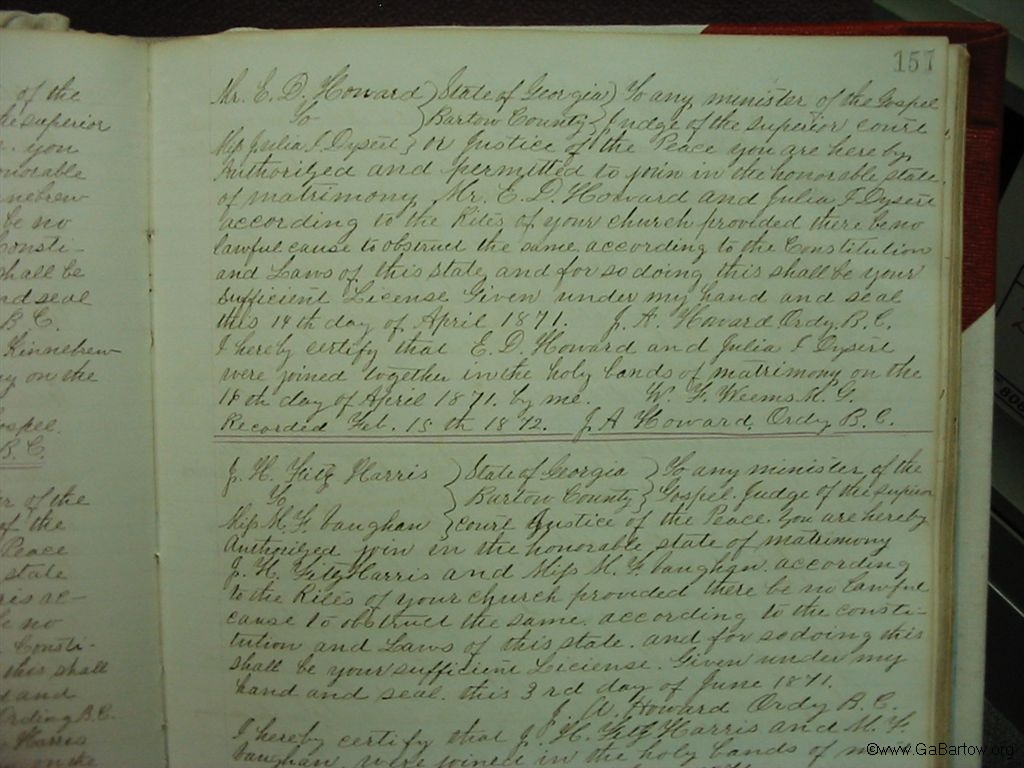 of the
he superior
you
onorable
nnebrew
be no
Consti-
shall be
nd seal
B. C.
Kinnebrew
ny on the
ospel.
B. C.
er of the
of the
Peace
state
ris ac-
be no
Consti-
this shall
d and
Ording B. C.
Harris
on the
157
Mr. E. D. Howard ) State of Georgia ) To any minister of the Gospel
To ) Bartow County } Judge of the superior court
Miss Julia I Dysert } or Justice of the Peace you are hereby
Authorized and permitted to join in the honorable state
of matrimony Mr. E. D. Howard and Julia I Dysert
according to the Rites of your church provided there be no
lawful cause to obstruct the same according to the Constitution
and Laws of this state and for so doing this shall be your
sufficient License Given under my hand and seal
this 14th day of April 1871. J. A. Howard Ordy. B. C.
I hereby certify that E. D. Howard and Julia I Dysert
were joined together in the holy bands of matrimony on the
18th day of April 1871. by me. W. F. Weems M. G.
Recorded Feb. 15th 1872. J. A Howard, Ordy B. C.
J. H. Fitz Harris } State of Georgia } To any minister of the
To } Bartow County } Gospel. Judge of the superior
Miss M. F. Vaughan } court Justice of the Peace. You are hereby
Authorized join in the honorable state of matrimony
J. H. Fitz Harris and Miss M. F. Vaughan. according
to the Rites of your church provided there be no lawful
cause to obstruct the same. according to the consti-
tution and Laws of this state. and for so doing this
shall be your sufficient Liciense. Given under my
hand and seal. this 3rd day of June 1871.
J. A. Howard Ordy B. C.
I hereby certify that J. H. Fitz Harris and M. F.
Vaughan, were joined in the holy bands of
©www.GaBartow.org